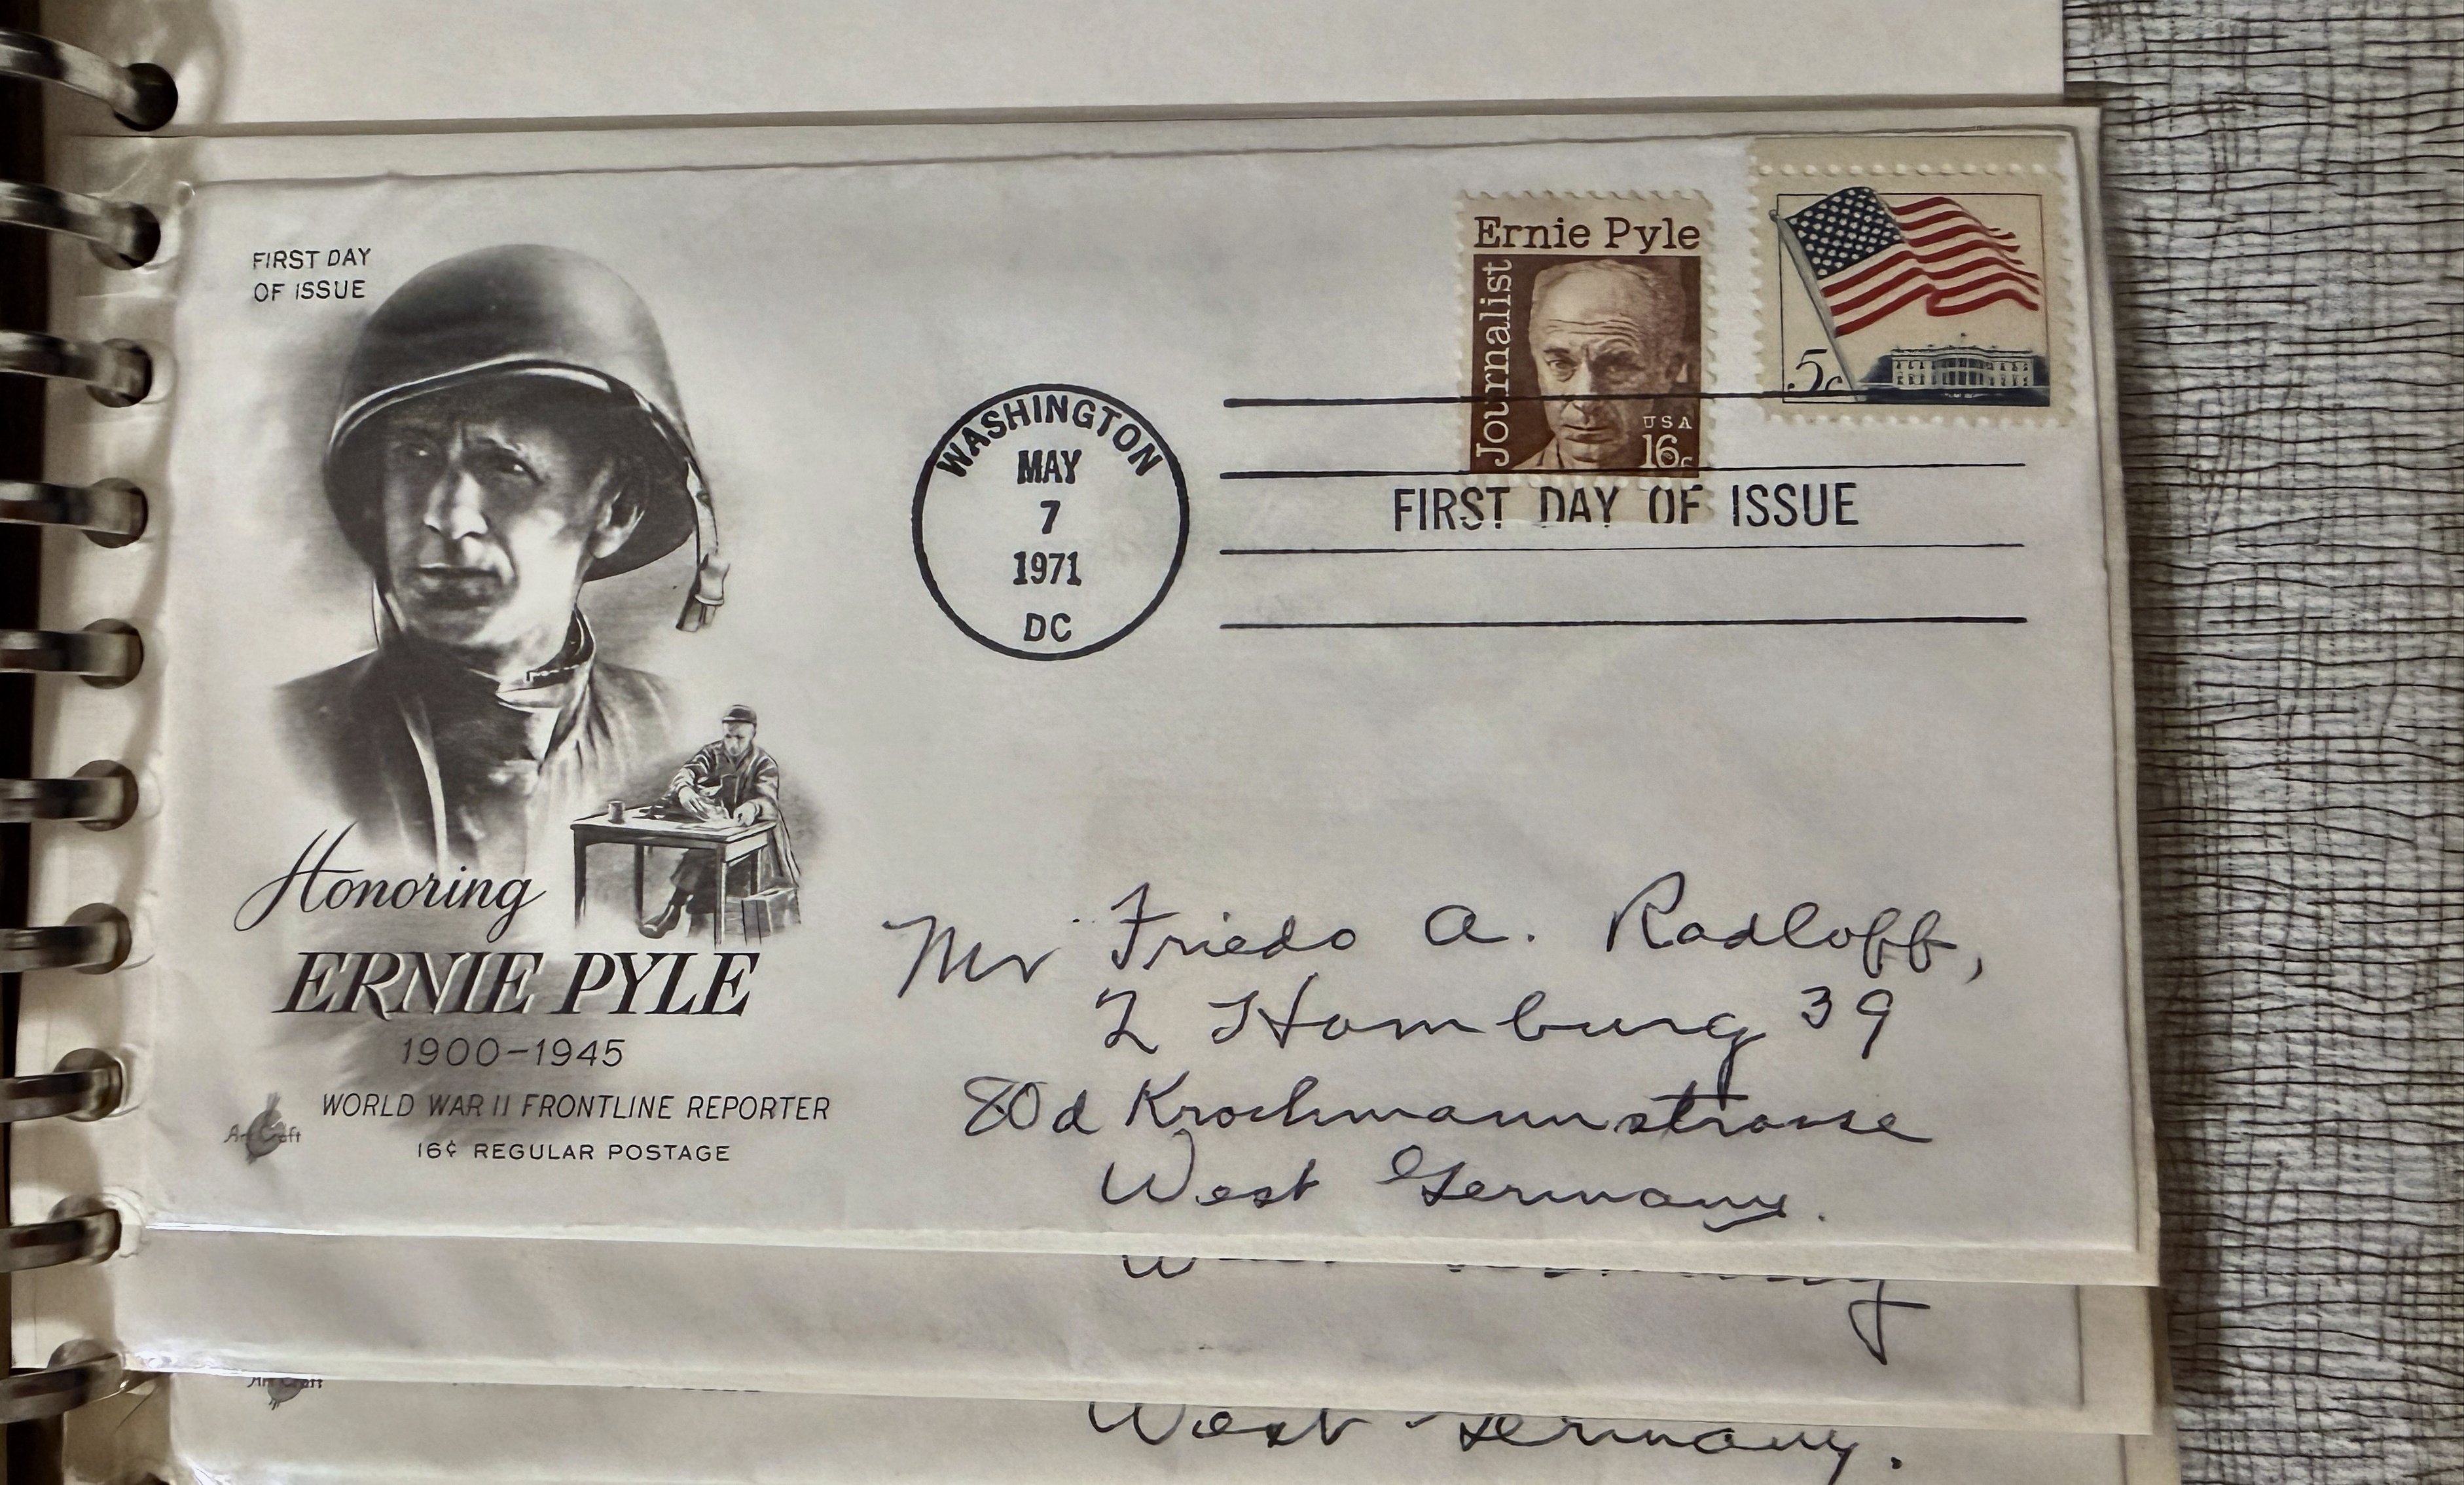 FIRST DAY
OF ISSUE
Ernie Pyle
Journalist
USA
16c
5c
WASHINGTON
MAY
7
1971
DC
FIRST DAY OF ISSUE
Honoring
ERNIE PYLE
1900-1945
WORLD WAR II FRONTLINE REPORTER
16¢ REGULAR POSTAGE
Art Craft
Mr Friedo A. Radloff,
2 Hamburg 39
80d Krochmannstrasse
West Germany.
Art Craft
West Germany.